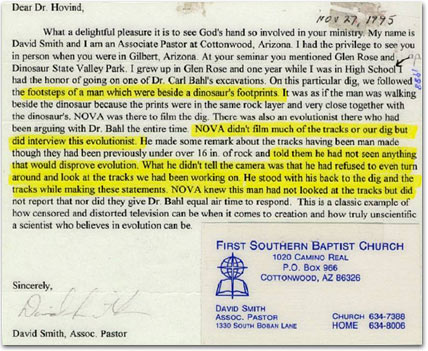 Nov 27, 1995
Dear Dr. Hovind,
What a delightful pleasure it is to see God's hand so involved in your ministry. My name is
David Smith and I am an Associate Pastor at Cottonwood, Arizona. I had the privilege to see you
in person when you were in Gilbert, Arizona. At your seminar you mentioned Glen Rose and
Dinosaur State Valley Park. I grew up in Glen Rose and one year while I was in High School I
had the honor of going on one of Dr. Carl Bahl's excavations. On this particular dig, we followed
the footsteps of a man which were beside a dinosaur's footprints. It was as if the man was walking
beside the dinosaur because the prints were in the same rock layer and very close together with
the dinosaur's. NOVA was there to film the dig. There was also an evolutionist there who had
been arguing with Dr. Bahl the entire time. NOVA didn't film much of the tracks or our dig but
did interview this evolutionist. He made some remark about the tracks having been man made
though they had been previously under over 16 in. of rock and told them he had not seen anything
that would disprove evolution. What he didn't tell the camera was that he had refused to even turn
around and look at the tracks we had been working on. He stood with his back to the dig and the
tracks while making these statements. NOVA knew this man had not looked at the tracks but did
not report that nor did they give Dr. Bahl equal air time to respond. This is a classic example of
how censored and distorted television can be when it comes to creation and how truly unscientific
a scientist who believes in evolution can be.
Sincerely,
David Smith, Assoc. Pastor
FIRST SOUTHERN BAPTIST CHURCH
1020 CAMINO REAL
P.O. BOX 966
COTTONWOOD, AZ 86326
DAVID SMITH
ASSOC. PASTOR
1330 SOUTH BOBAN LANE
CHURCH 634-7388
HOME 634-8006